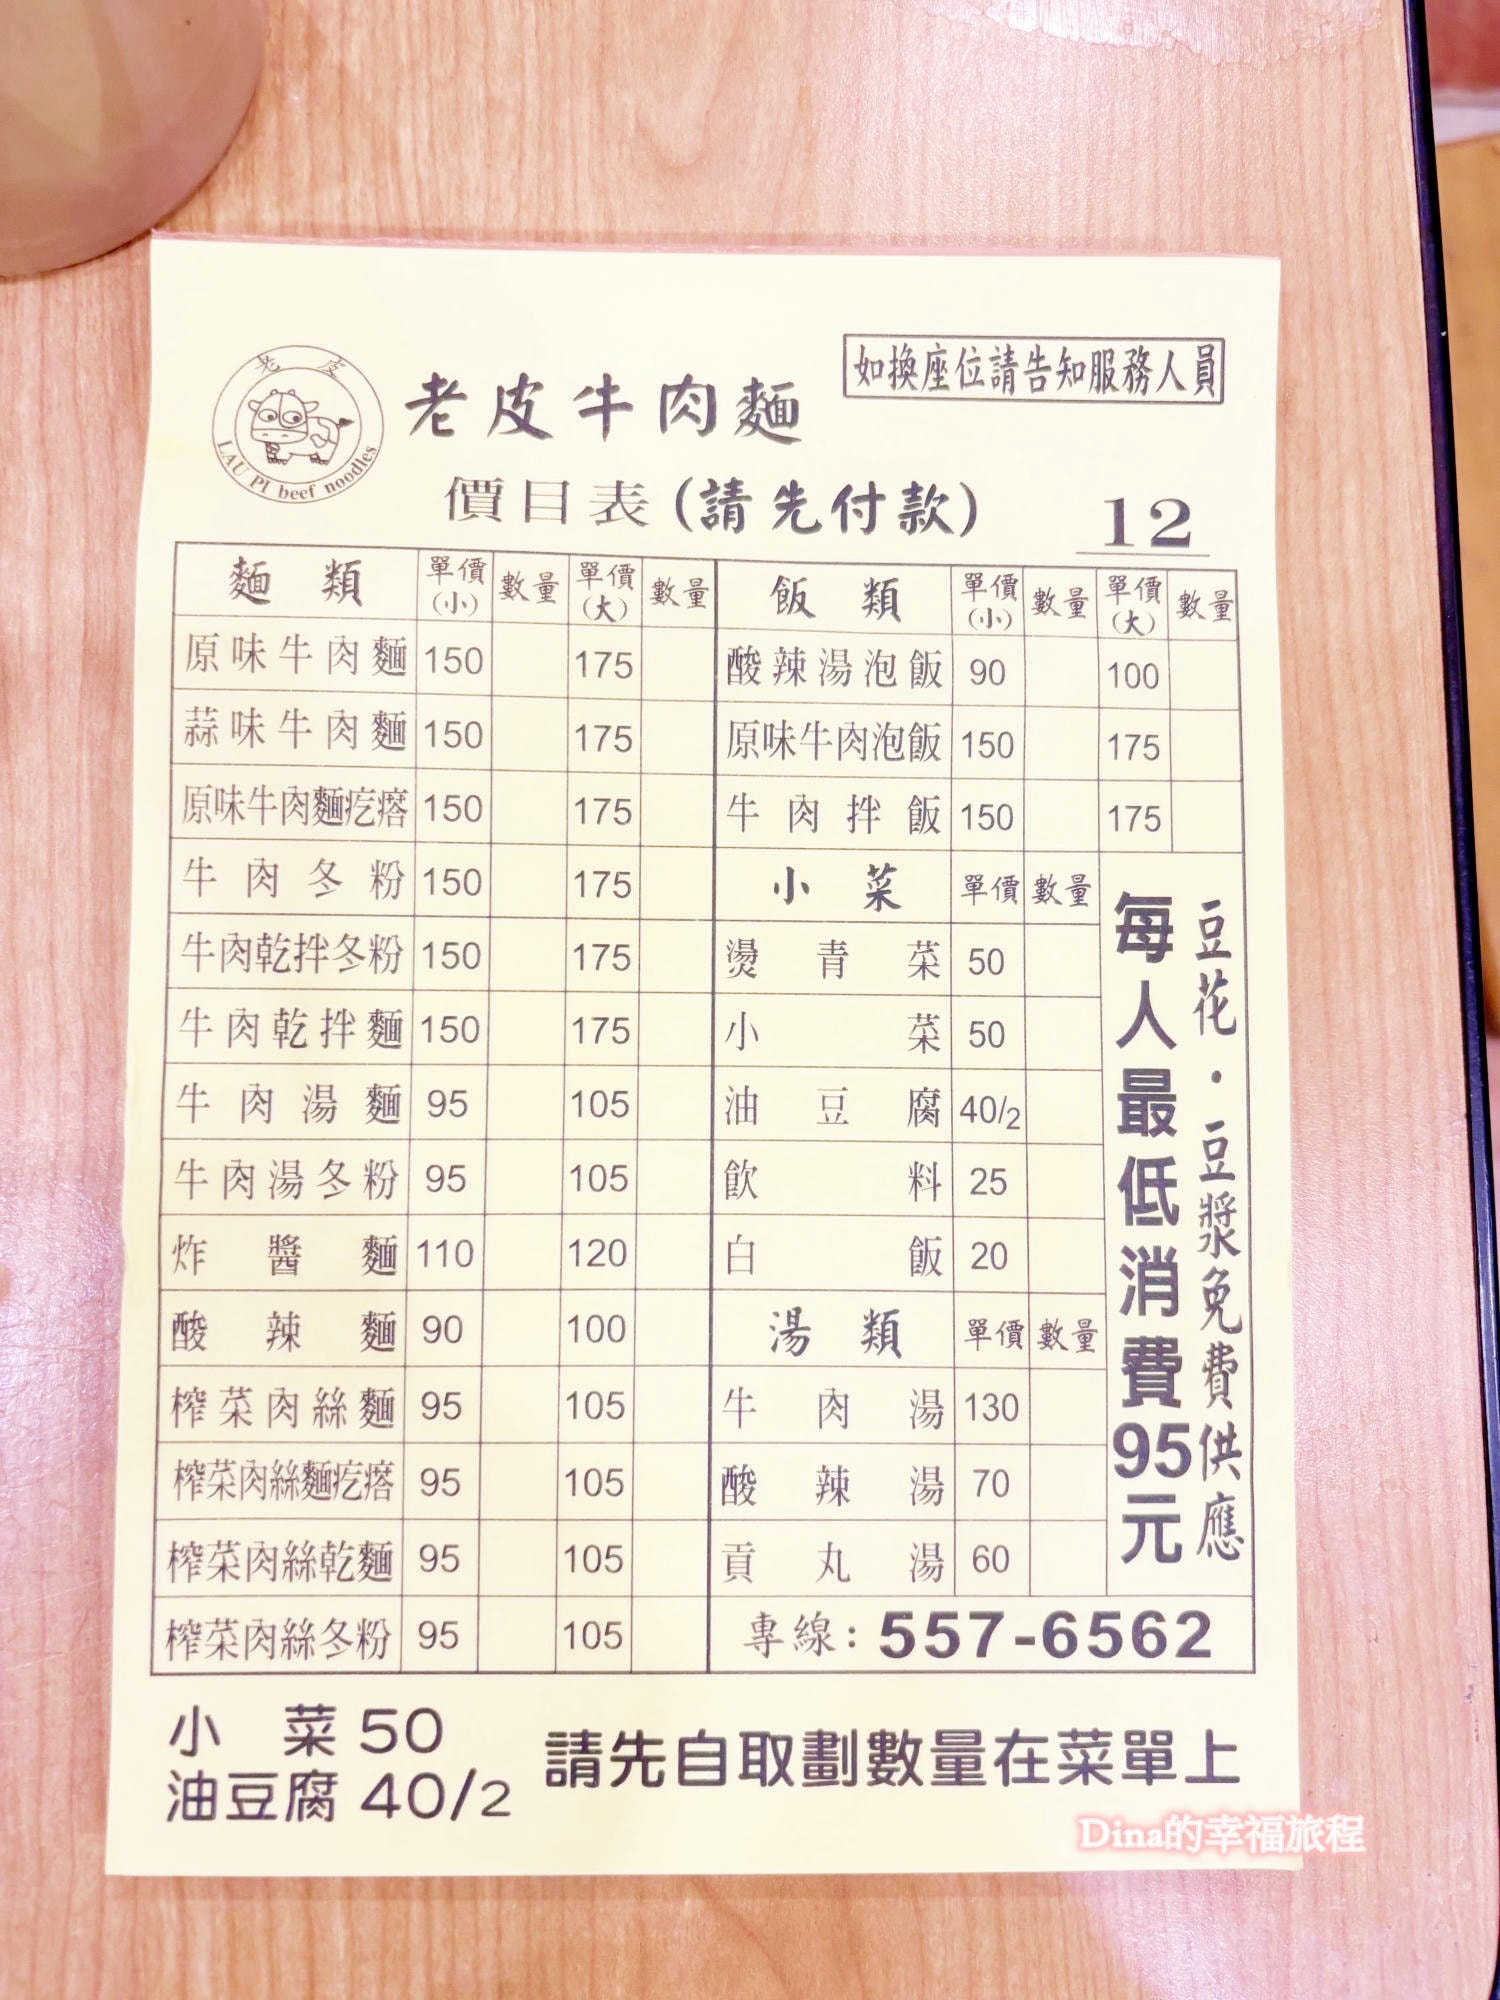 如換座位請告知服務人員
老皮
LAU PI beef noodles
老皮牛肉麵
價目表(請先付款)
12
麵類 單價(小) 數量 單價(大) 數量
原味牛肉麵 150 175
蒜味牛肉麵 150 175
原味牛肉麵疙瘩 150 175
牛肉冬粉 150 175
牛肉乾拌冬粉 150 175
牛肉乾拌麵 150 175
牛肉湯麵 95 105
牛肉湯冬粉 95 105
炸醬麵 110 120
酸辣麵 90 100
榨菜肉絲麵 95 105
榨菜肉絲麵疙瘩 95 105
榨菜肉絲乾麵 95 105
榨菜肉絲冬粉 95 105
飯類 單價(小) 數量 單價(大) 數量
酸辣湯泡飯 90 100
原味牛肉泡飯 150 175
牛肉拌飯 150 175
小菜 單價 數量
燙青菜 50
小菜 50
油豆腐 40/2
飲料 25
白飯 20
湯類 單價 數量
牛肉湯 130
酸辣湯 70
貢丸湯 60
豆花・豆漿免費供應
每人最低消費95元
專線:557-6562
小菜 50
油豆腐 40/2
請先自取劃數量在菜單上
Dina的幸福旅程